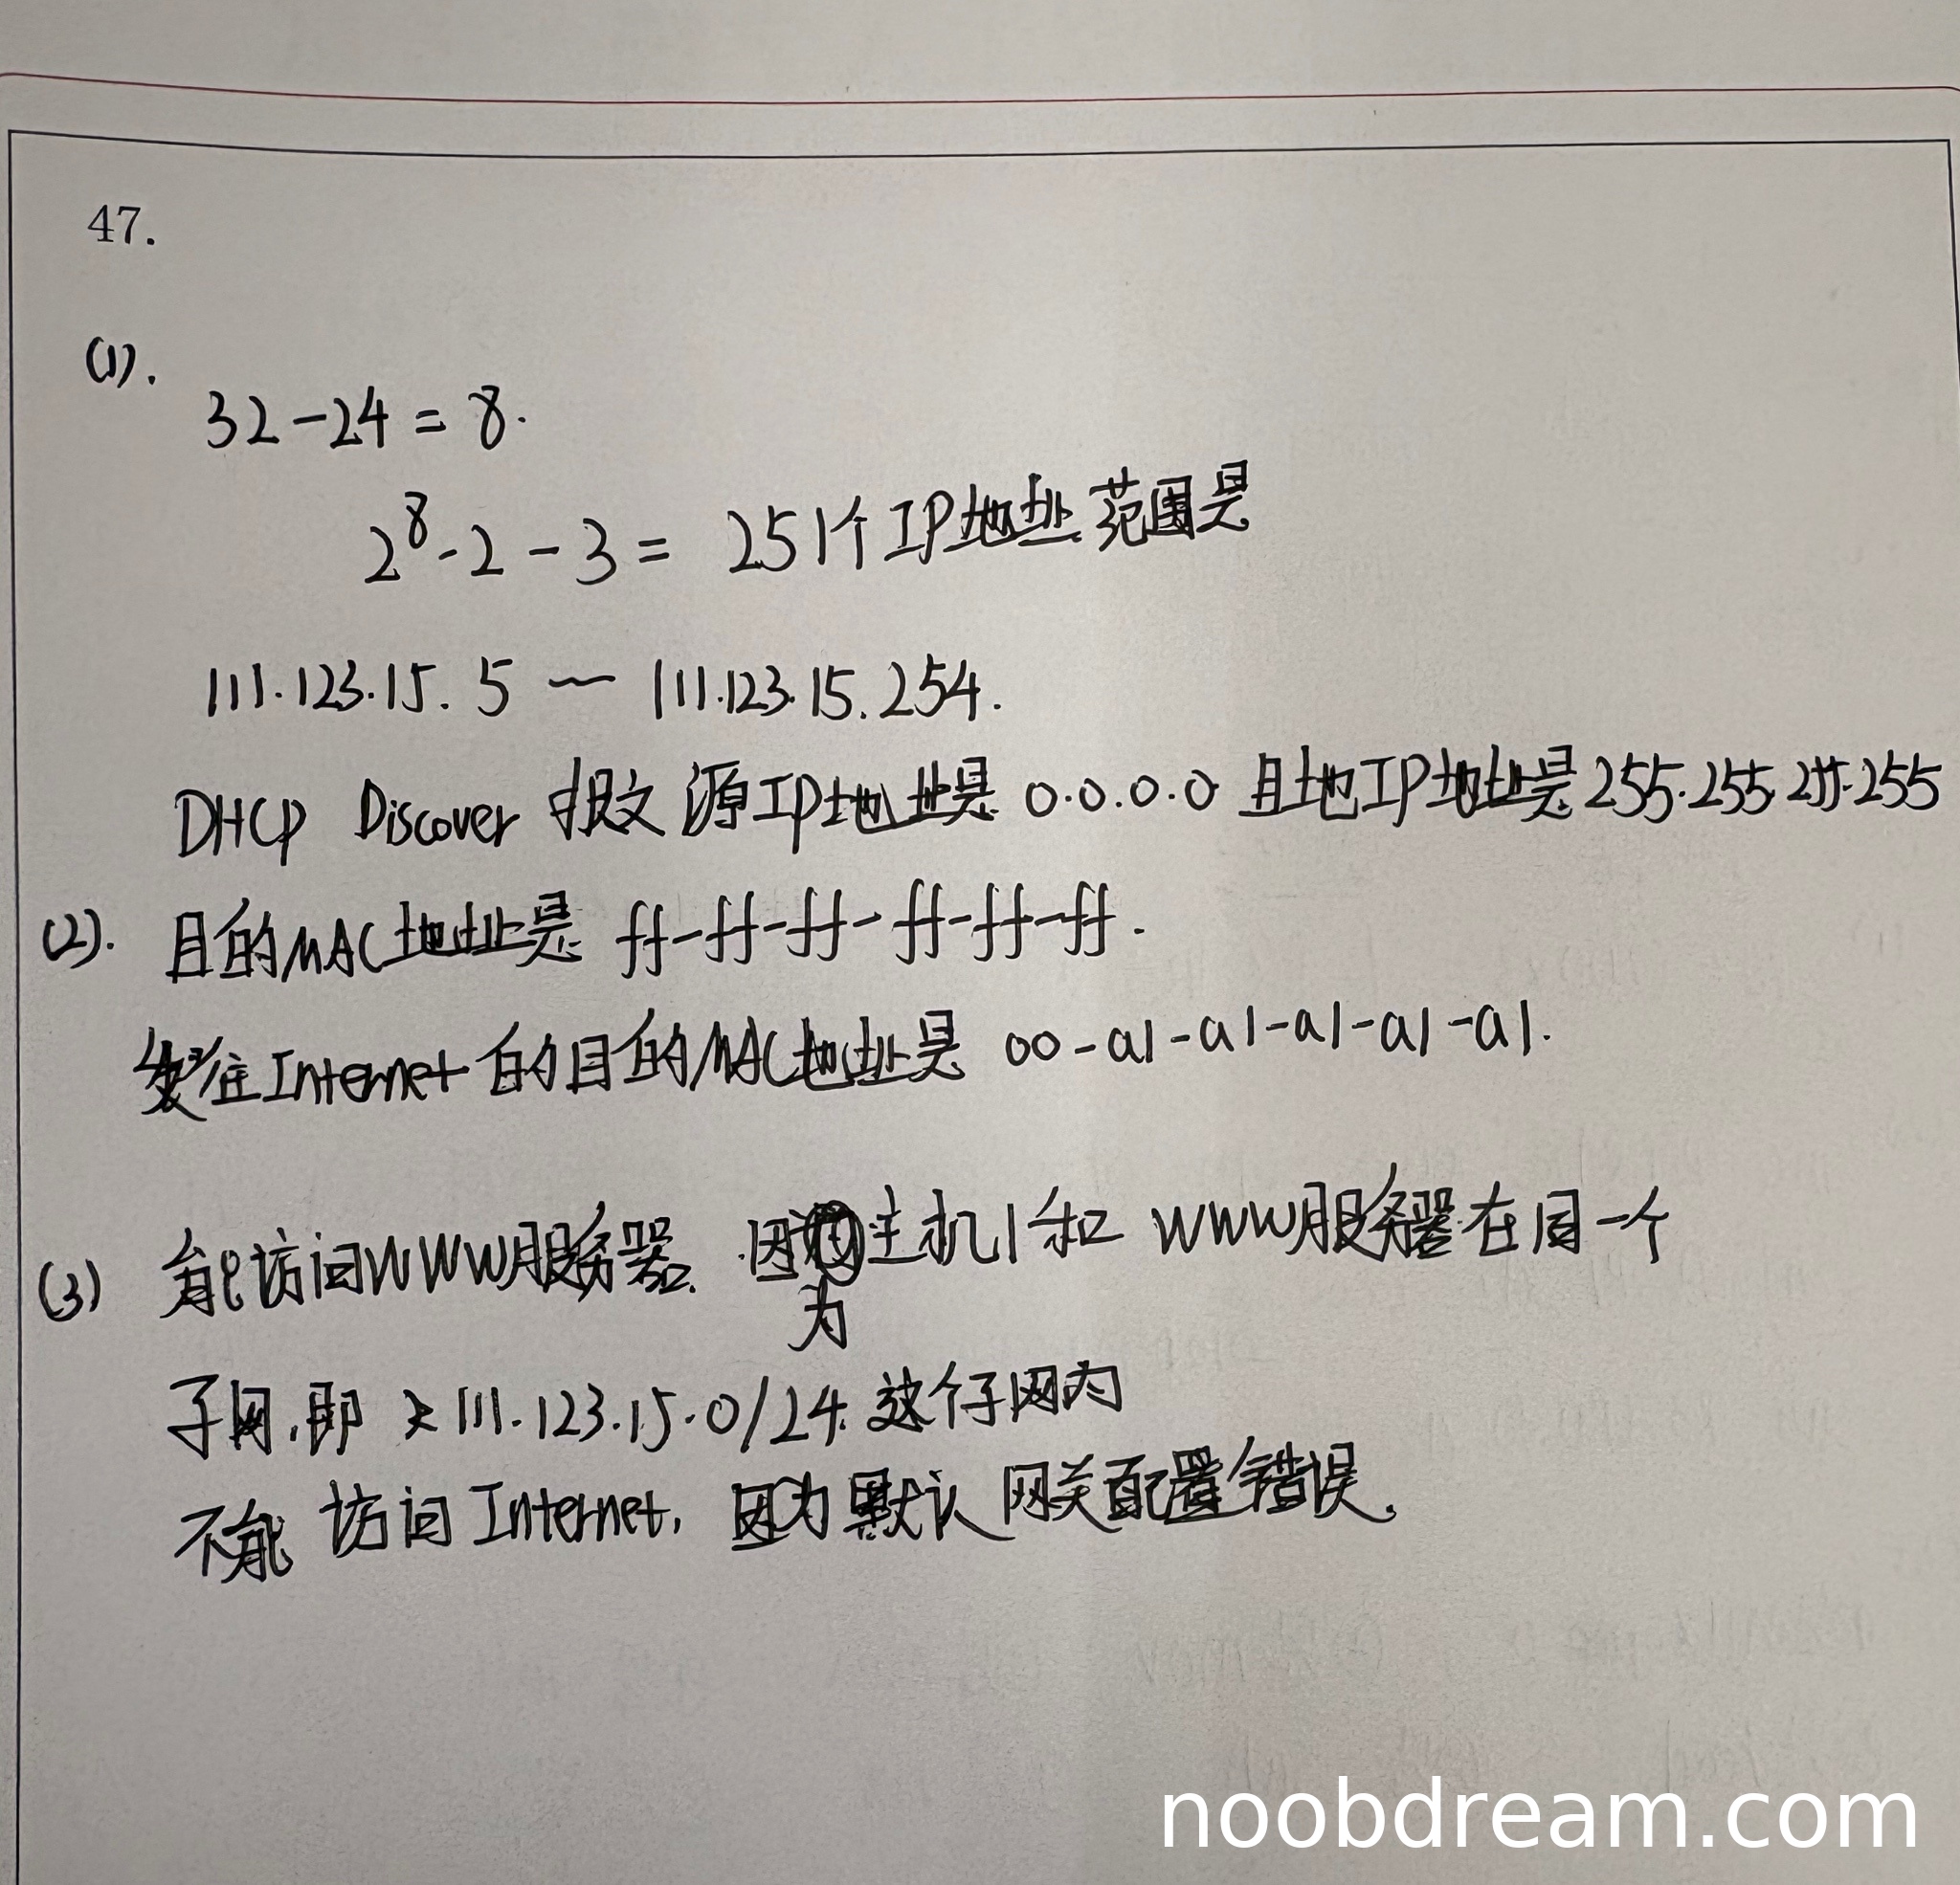 47.
(1).
32-24=8.
2⁸-2-3= 251个IP地址范围是
111.123.15.5 ~ 111.123.15.254.
DHCP Discover 报文 源IP地址是 0.0.0.0 且地IP地址是255.255.255.255
(2). 目的MAC地址是 ff-ff-ff-ff-ff-ff.
发往Internet的目的MAC地址是 00-a1-a1-a1-a1-a1.
(3) 能访问WWW服务器. 因为主机1和 WWW服务器在同一个
子网,即 111.123.15.0/24.这个子网内
不能 访问 Internet, 因为默认网关配置错误.
noobdream.com